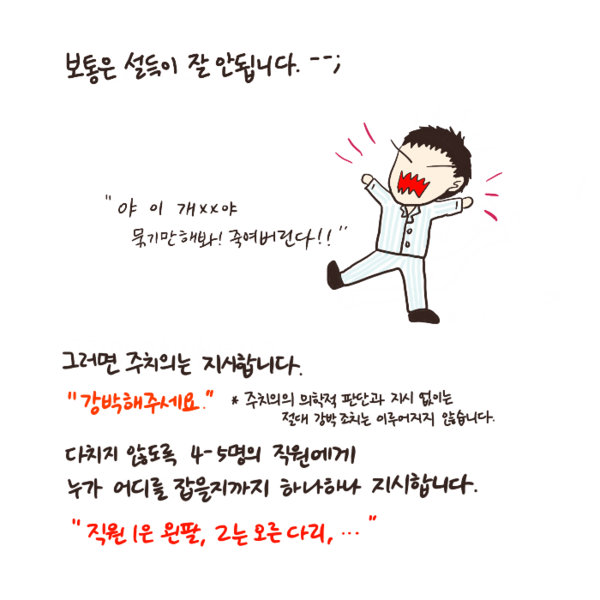 보통은 설득이 잘 안됩니다. --;
"야 이 개xx야
묶기만해봐! 죽여버린다!!"
그러면 주치의는 지시합니다.
"강박해주세요." * 주치의의 의학적 판단과 지시 없이는
절대 강박조치는 이루어지지 않습니다.
다치지 않도록 4-5명의 직원에게
누가 어디를 잡을지까지 하나하나 지시합니다.
"직원 1은 왼팔, 2는 오른 다리, ..."